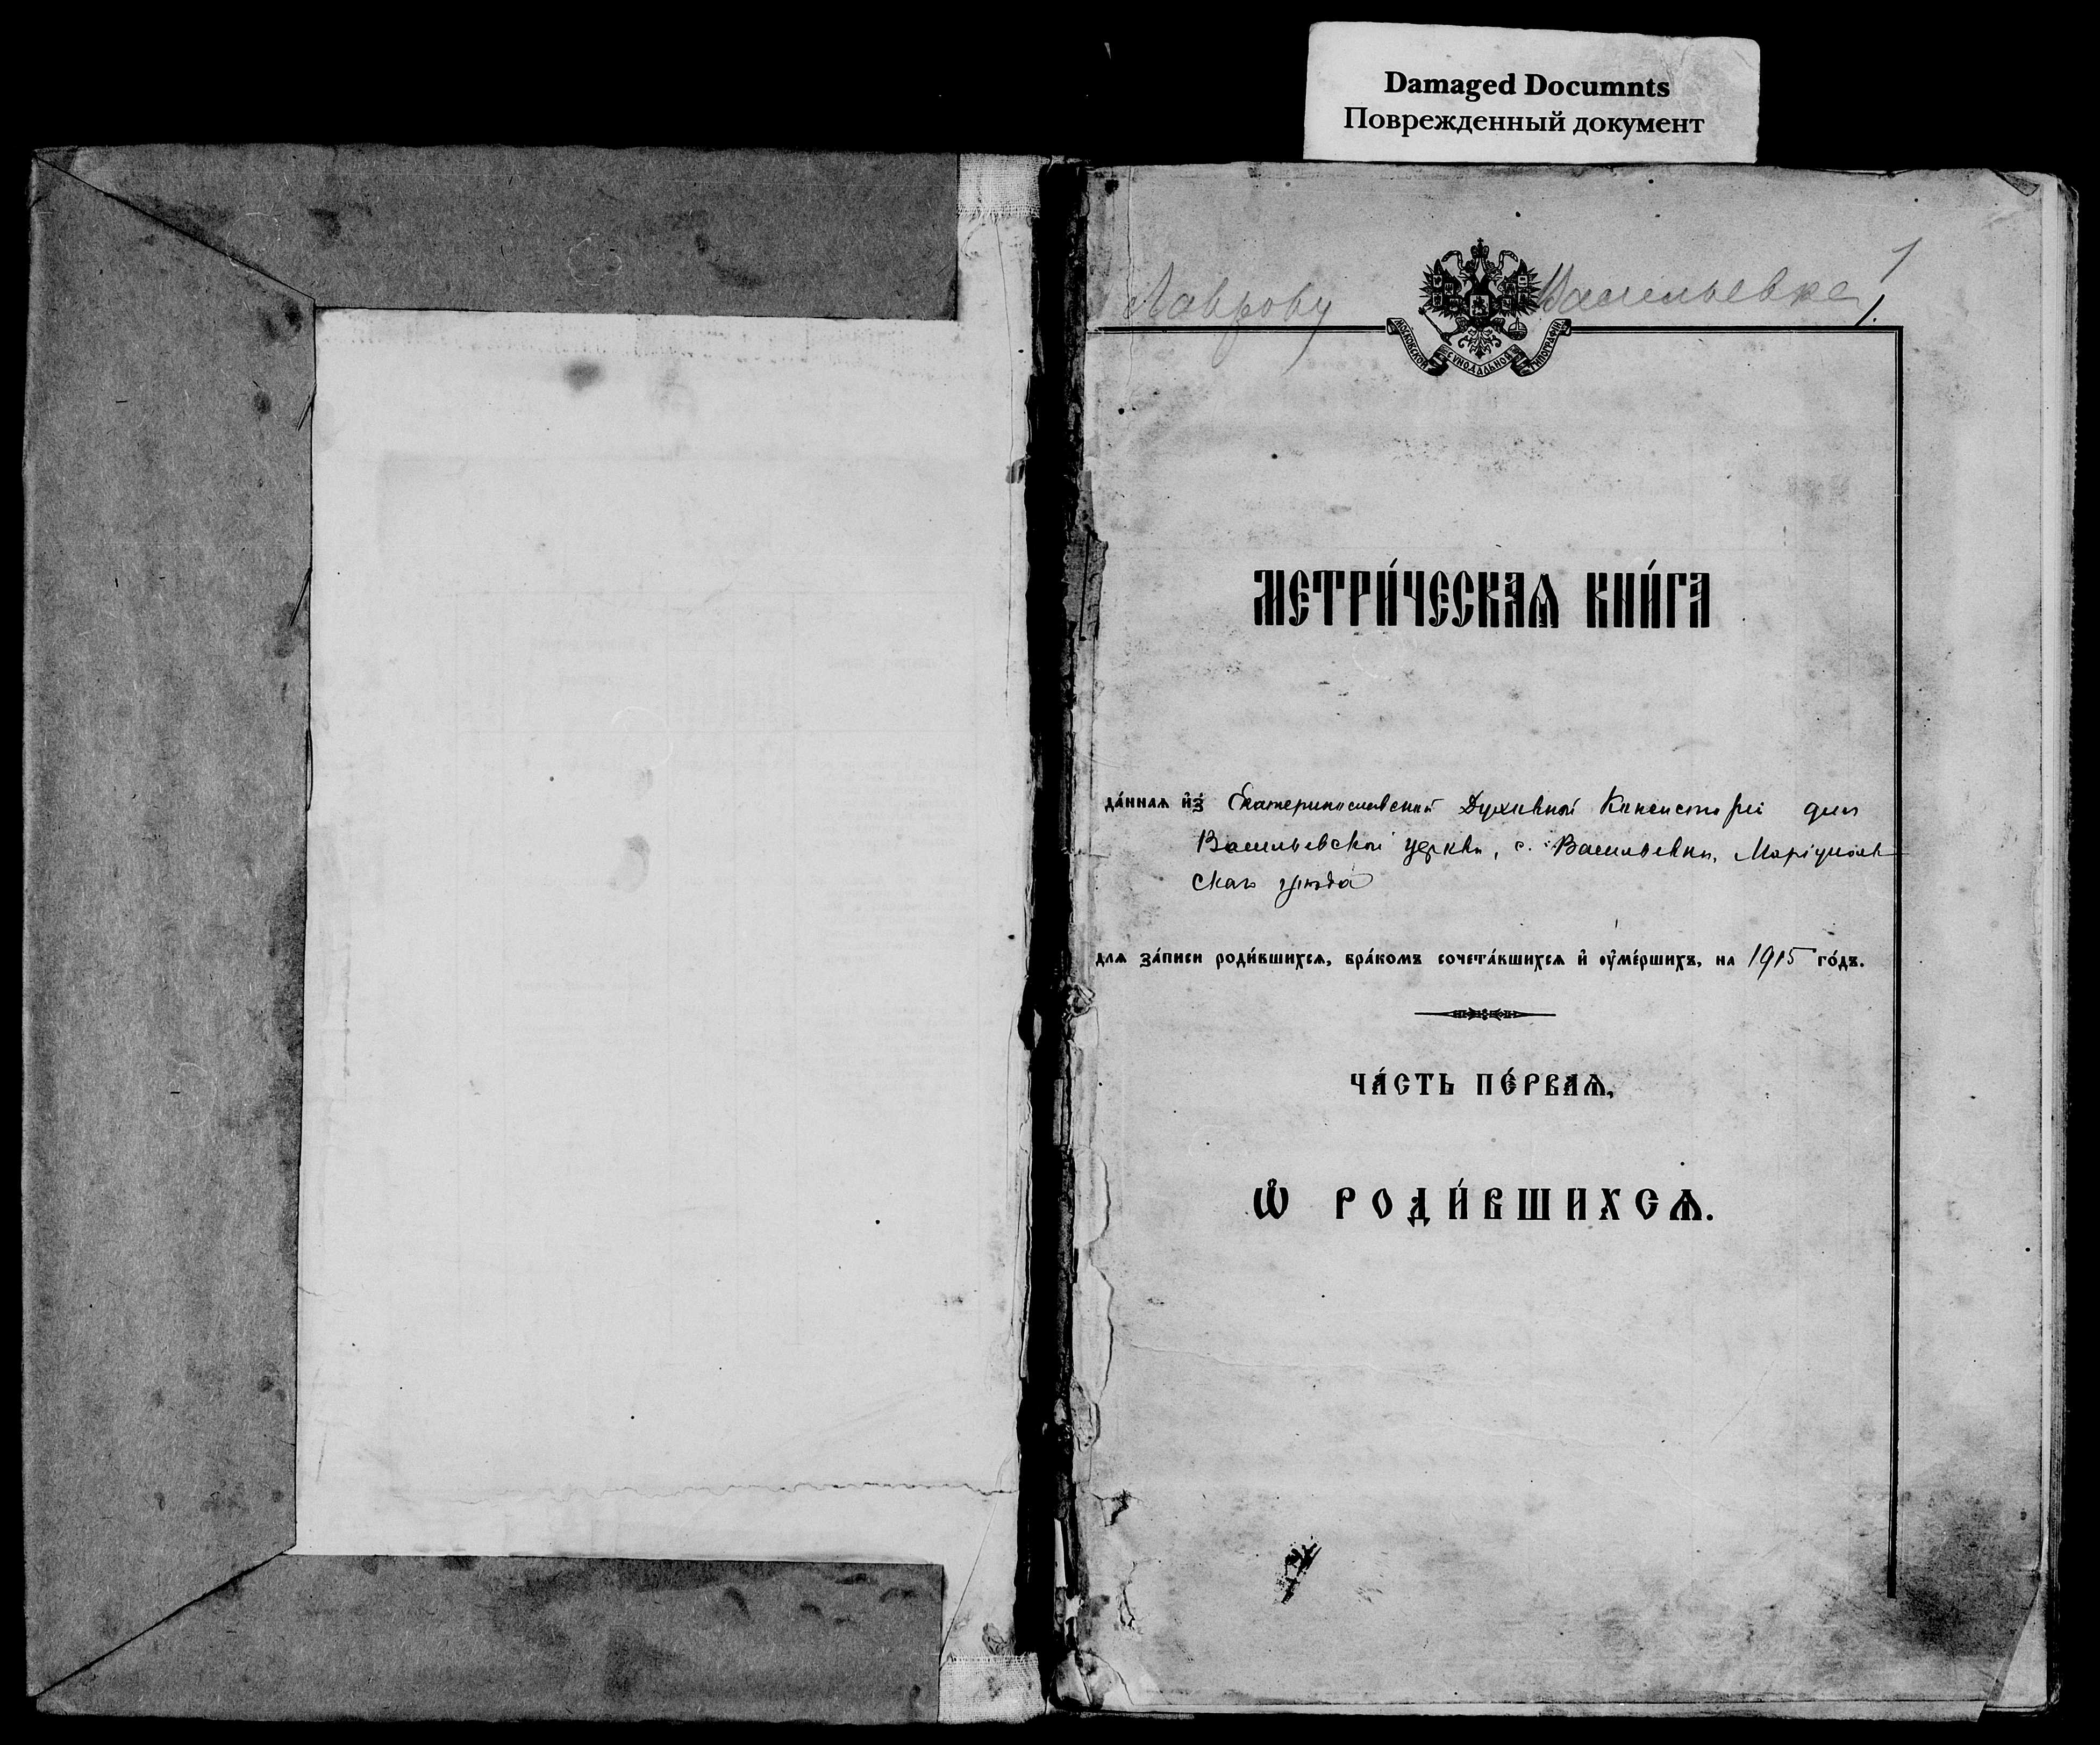 Damaged Documnts
Поврежденный документ
Лаврову Васильевка 1
1.
МОСКОВСКОЙ СѴНОДАЛЬНОЙ ТИПОГРАФІИ
МЕТРИ́ЧЕСКАѦ КНИ́ГА
да́ннаѧ и҆з̾ Екатеринославской Духовной Консисторіи для
Васильевской церкви, с. Васильевки, Маріуполь
скаго уѣзда
длѧ за́писи роди́вшихсѧ, бра́комъ сочета́вшихсѧ и҆ оу҆ме́ршихъ, на 1915 го́дъ.
ЧА́СТЬ ПЕ́РВАѦ,
Ѡ҆ РОДИ́ВШИХСѦ.